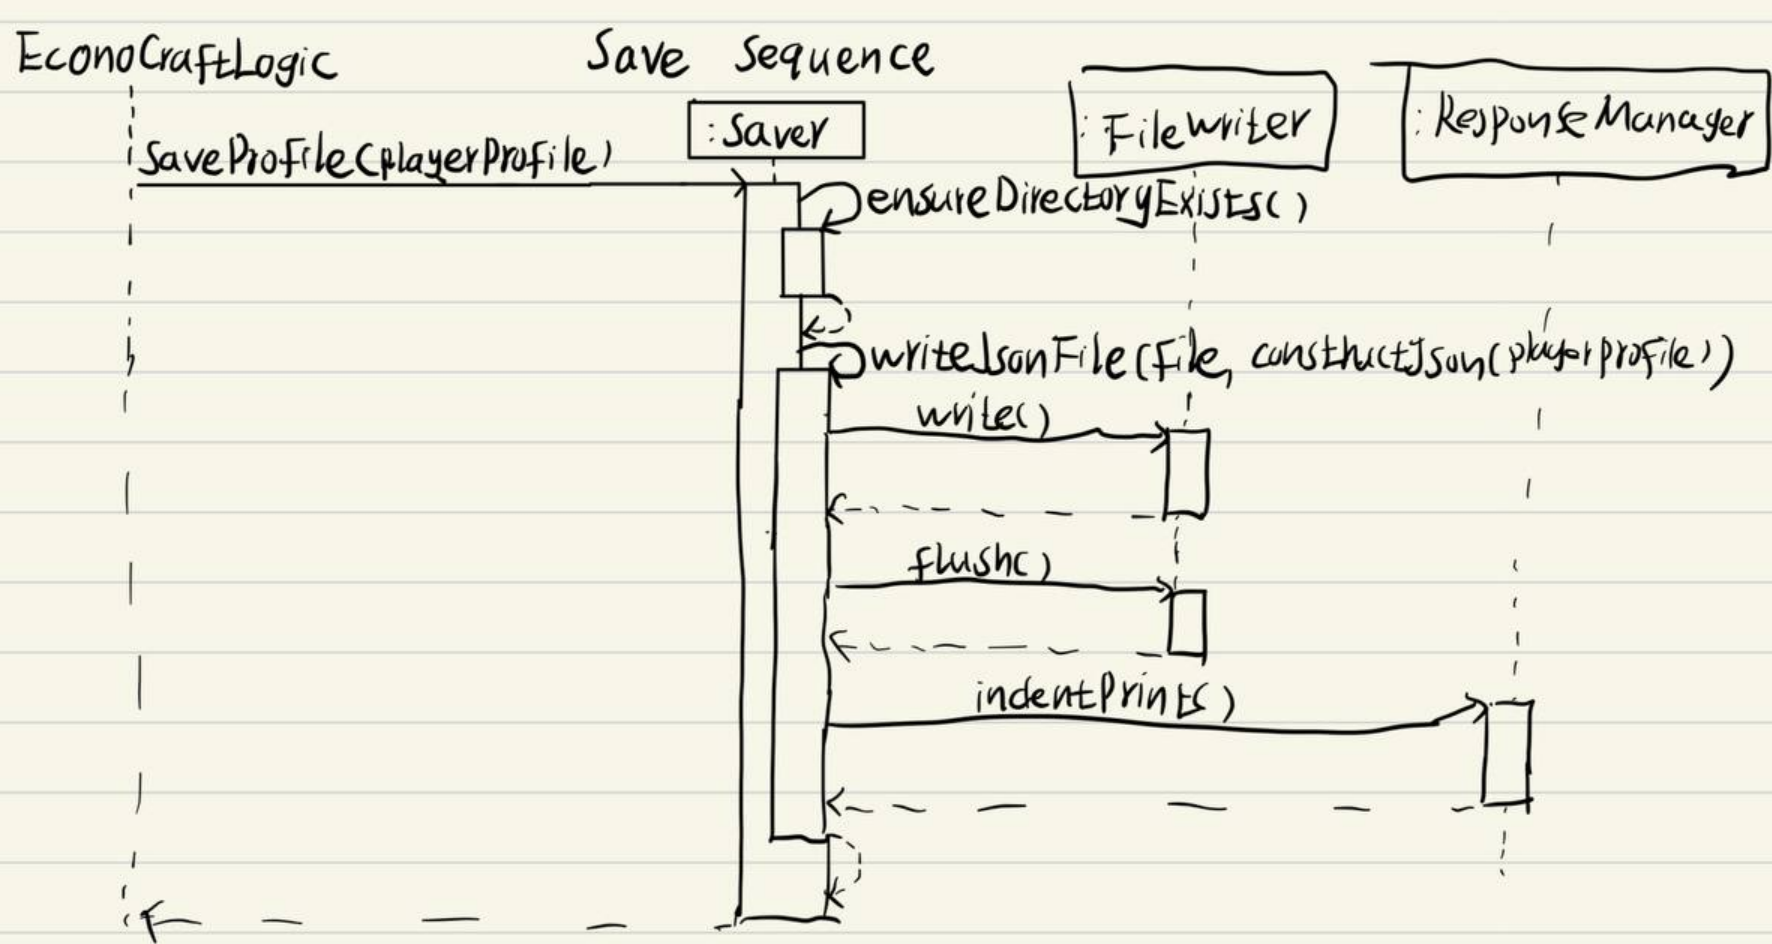 EconoCraftLogic
Save Sequence
:Saver
:FileWriter
:ResponseManager
SaveProfile(playerProfile)
ensureDirectoryExists()
writeJsonFile(File, constructJson(playerprofile))
write()
flush()
indentPrint()